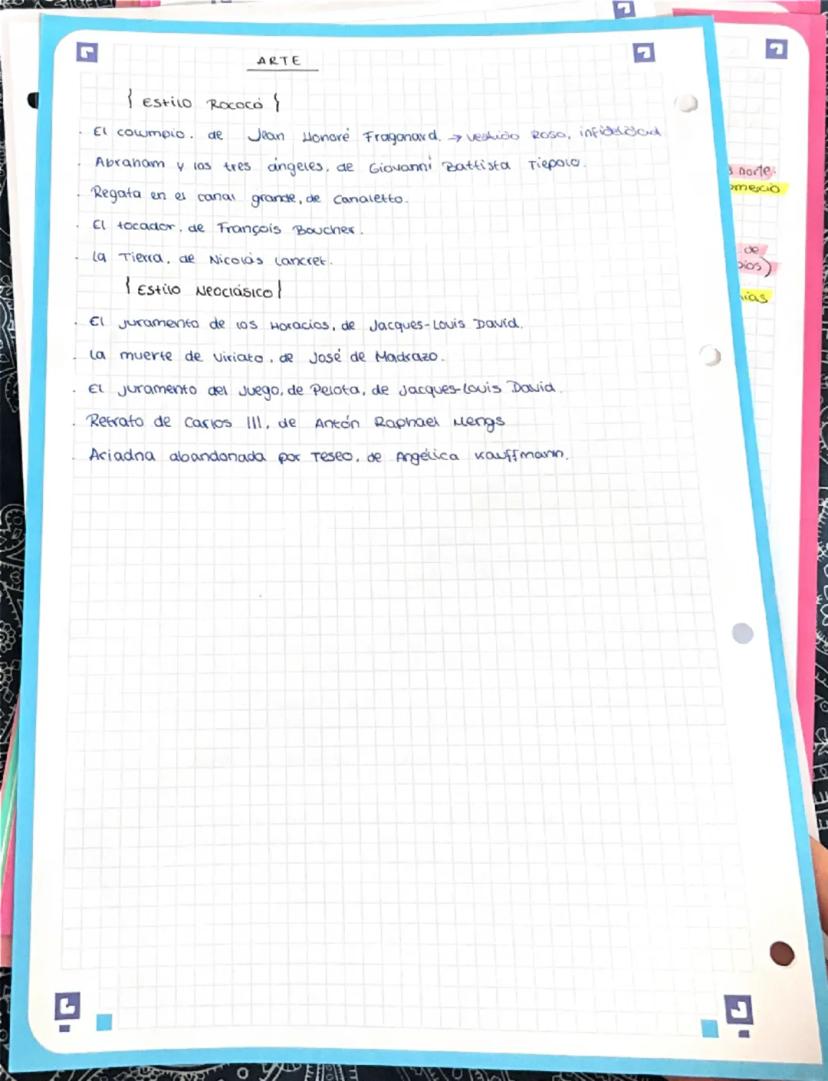 ARTE
{ Estilo Rococó }
· El columpio, de Jean Honoré Fragonard. → vestido rosa, infidelidad
· Abraham y los tres ángeles, de Giovanni Battista Tiepolo.
· Regata en el canal grande, de Canaletto.
· El tocador, de François Boucher.
· La Tierra, de Nicolás Lancret.
{ Estilo Neoclásico }
· El juramento de los Horacios, de Jacques-Louis David.
· La muerte de Viriato, de José de Madrazo.
· El juramento del Juego, de Pelota, de Jacques-Louis David.
· Retrato de Carlos III, de Antón Raphael Mengs
· Ariadna abandonada por Teseo, de Angélica Kauffmann.
norte.
de